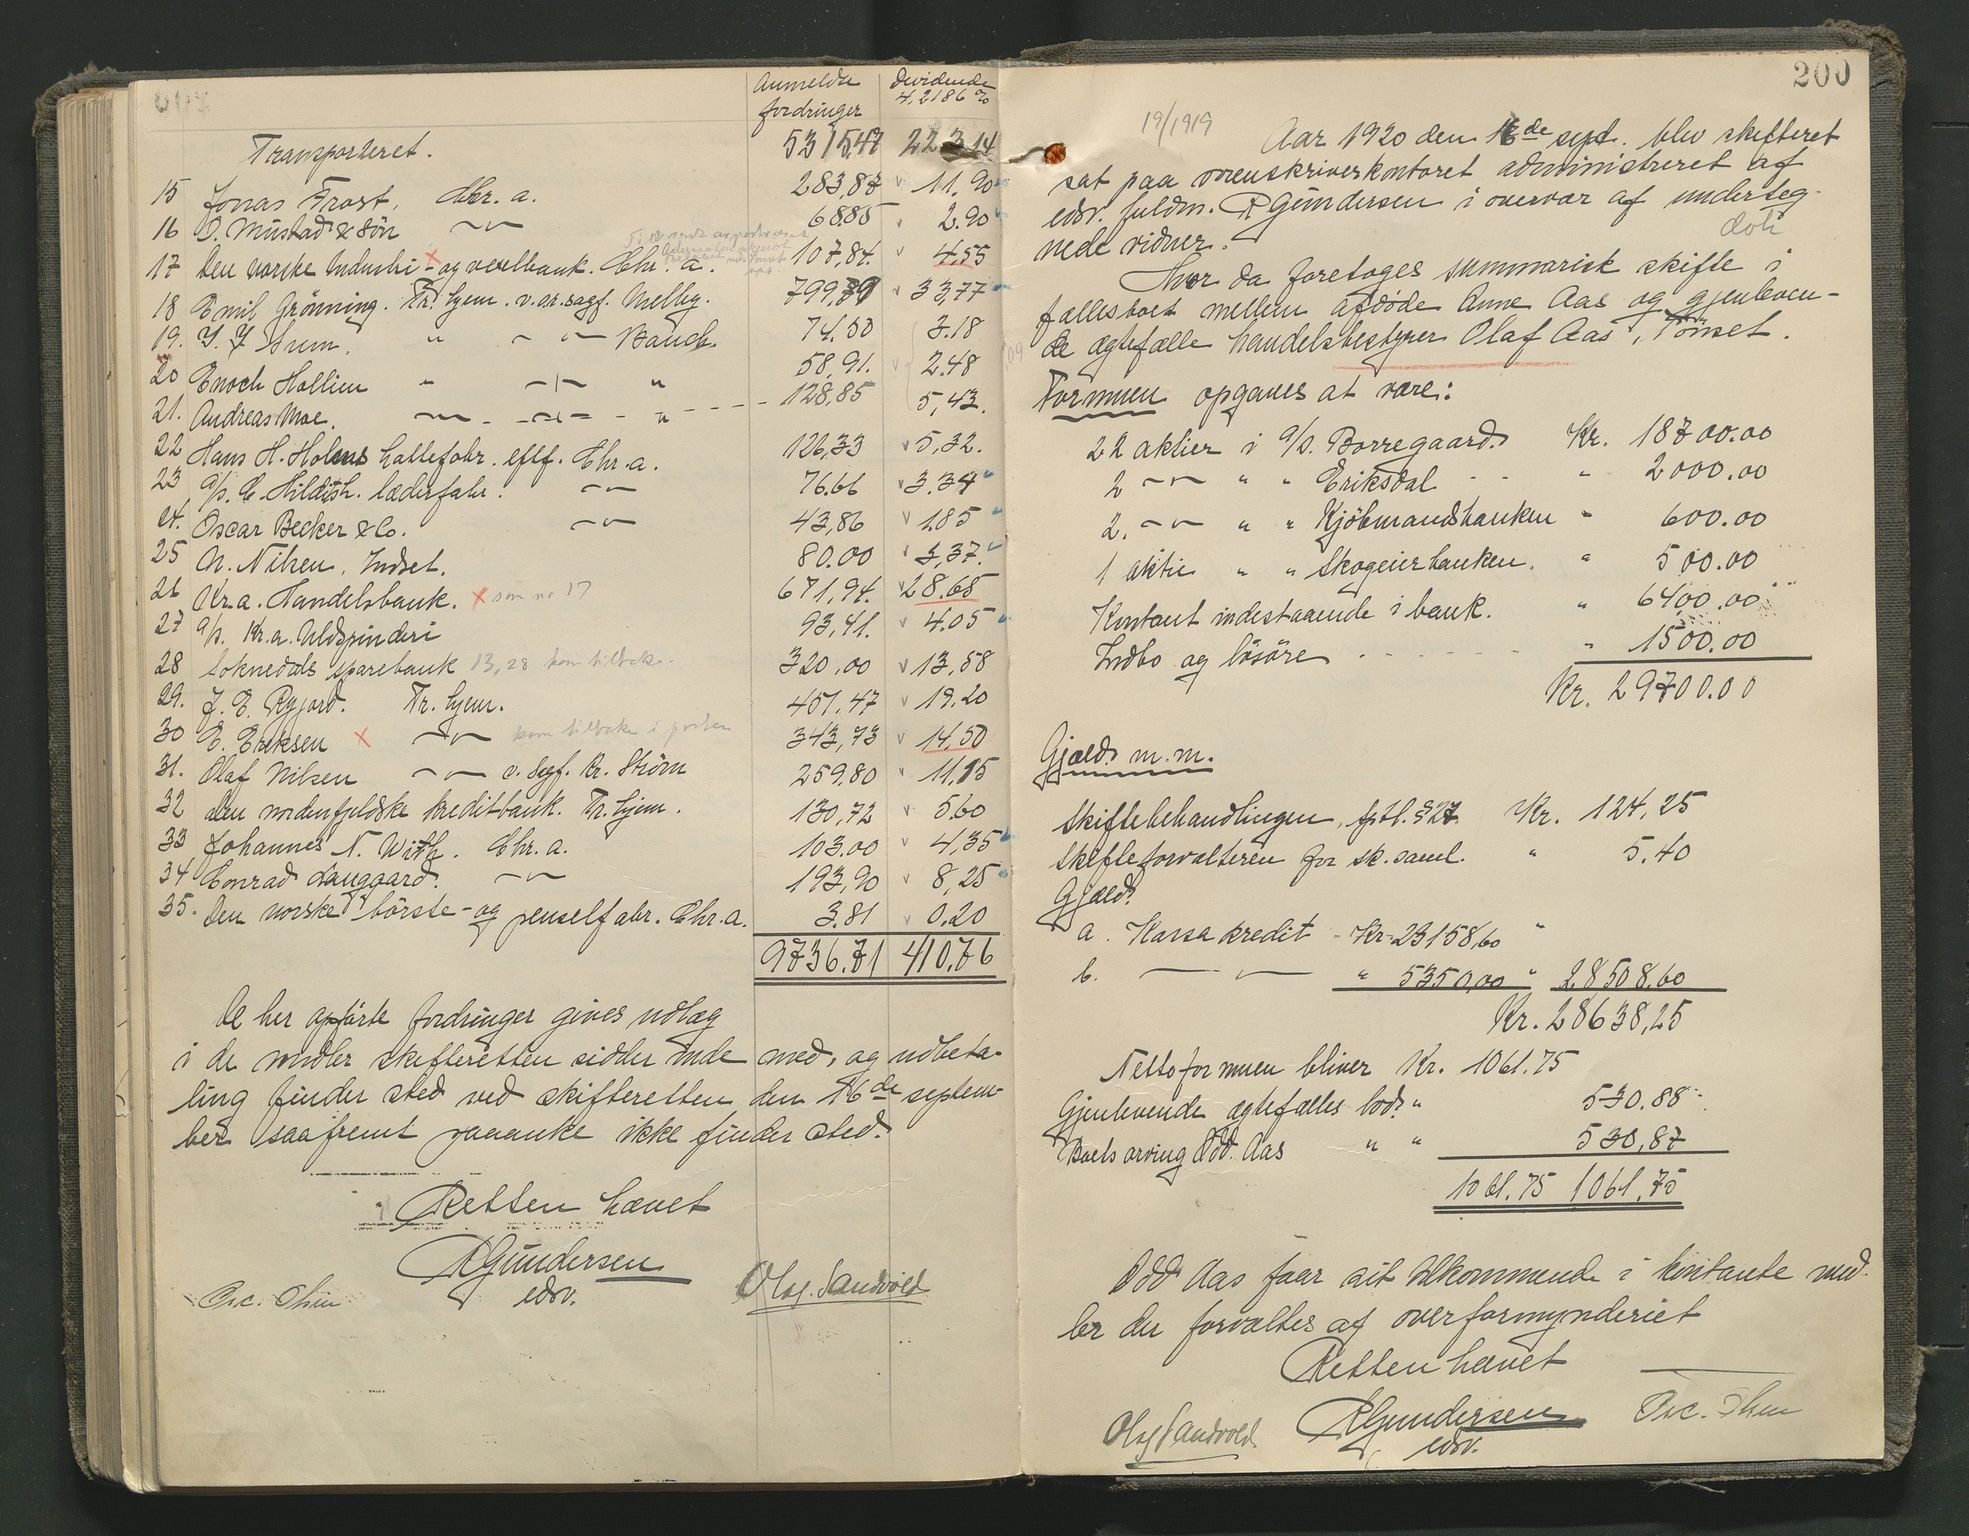 Anmeldte Dividende
fordringer 4,2186 %
Transporteret. 5315,47 223,14
15 Jonas Frost, Chr.a. 283,87 11.90
16 O. Mustad & Sön —"— 68.85 2.90
17 Den norske Industri- og vexelbank. Chr. a. 107,84. 4.55
18 Emil Grönning. Tr.hjem. v. or.sagf. Melby. 799,79 33,77
19. J. J. Krem. " — "— Bauck. 74.50 3.18
20 Enoch Hollien " —"— " 58,91. 2.48
21. Andreas Moe. —"— —"— " 128,85 5,43.
22 Hans H. Holms hattefabr. eftf. Chr. a. 126,33 5,32.
23 A/s. C. Hildish. læderfabr. —"— 76.66 3.34
24. Oscar Becker & Co. —"— 43,86 1.85
25 N. Nilsen, Indset. 80.00 3,37.
26 Kr.a. Handelsbank. x som no 17 671,94. 28.65
27 A/s. Kr.a. Uldspinderi 93,41. 4.05
28 Soknedals sparebank 13,28 kom tilbake. 320,00 13,58
29. J. E. Rygjord. Tr. hjem. 451,47 19.20
30 E. Eriksen x —"— kom tilbake i posten 343,73 14,50
31. Olaf Nilsen —"— v. Sagf. Kr. Ström 259,80 11,15
32 Den nordenfjeldske kreditbank. Tr. hjem. 130,72 5.60
33 Johannes N. With. Chr. a. 103.00 4,35
34 Conrad Langgaard. —"— 193,90 8,25
35. Den norske börste- og penselfabr. Chr.a. 3.81 0.20
9736.71 410.76
De her opförte fordringer gives udlæg
i de midler skifteretten sidder inde med, og udbeta-
ling finder sted ved skifteretten den 16de septem-
ber saafremt paaanke ikke finder sted.
Retten hævet
RGundersen
edsv.
Osc. Thin
Olaf. Sandvold
200
19/1919
Aar 1920 den 16de sept. blev skifteret
sat paa sorenskriverkontoret administreret af
edsv. fuldm. RGundersen i overvær af underteg-
nede vidner.
Hvor da foretoges summarisk skifte i
fællesboet mellem afdøde Anne Aas og gjenleven-
de ægtefælle handelsbestyrer Olaf Aas, Tönset.
Formuen opgaves at være:
22 aktier i A/s. Borregaard. Kr. 18700.00
2 —"— " " Eriksdal " 2000.00
2. —"— " " Kjöbmandsbanken " 600.00
1 aktie " " Skogeierbanken. " 500.00
Kontant indestaaende i bank. " 6400.00
Indbo og lösöre " 1500.00
Kr. 29700.00
Gjæld m.m.
Skiftebehandlingen, sptl. § 27 Kr. 124,25
Skifteforvalteren for sk. saml. " 5.40
Gjæld
a. Kassakredit - Kr. 23158,60 "
b. — " — " 5350,00 " 28508.60
Kr. 28638,25
Nettoformuen bliver Kr. 1061.75
Gjenlevende ægtefælles lod " 530.88
Boets arving Odd Aas " " 530,87
1061.75 1061,75
Odd Aas faar sit tilkommende i kontante mid-
ler der forvaltes af overformynderiet
Retten hævet
RGundersen
edsv.
Olaf Sandvold
Osc. Thin